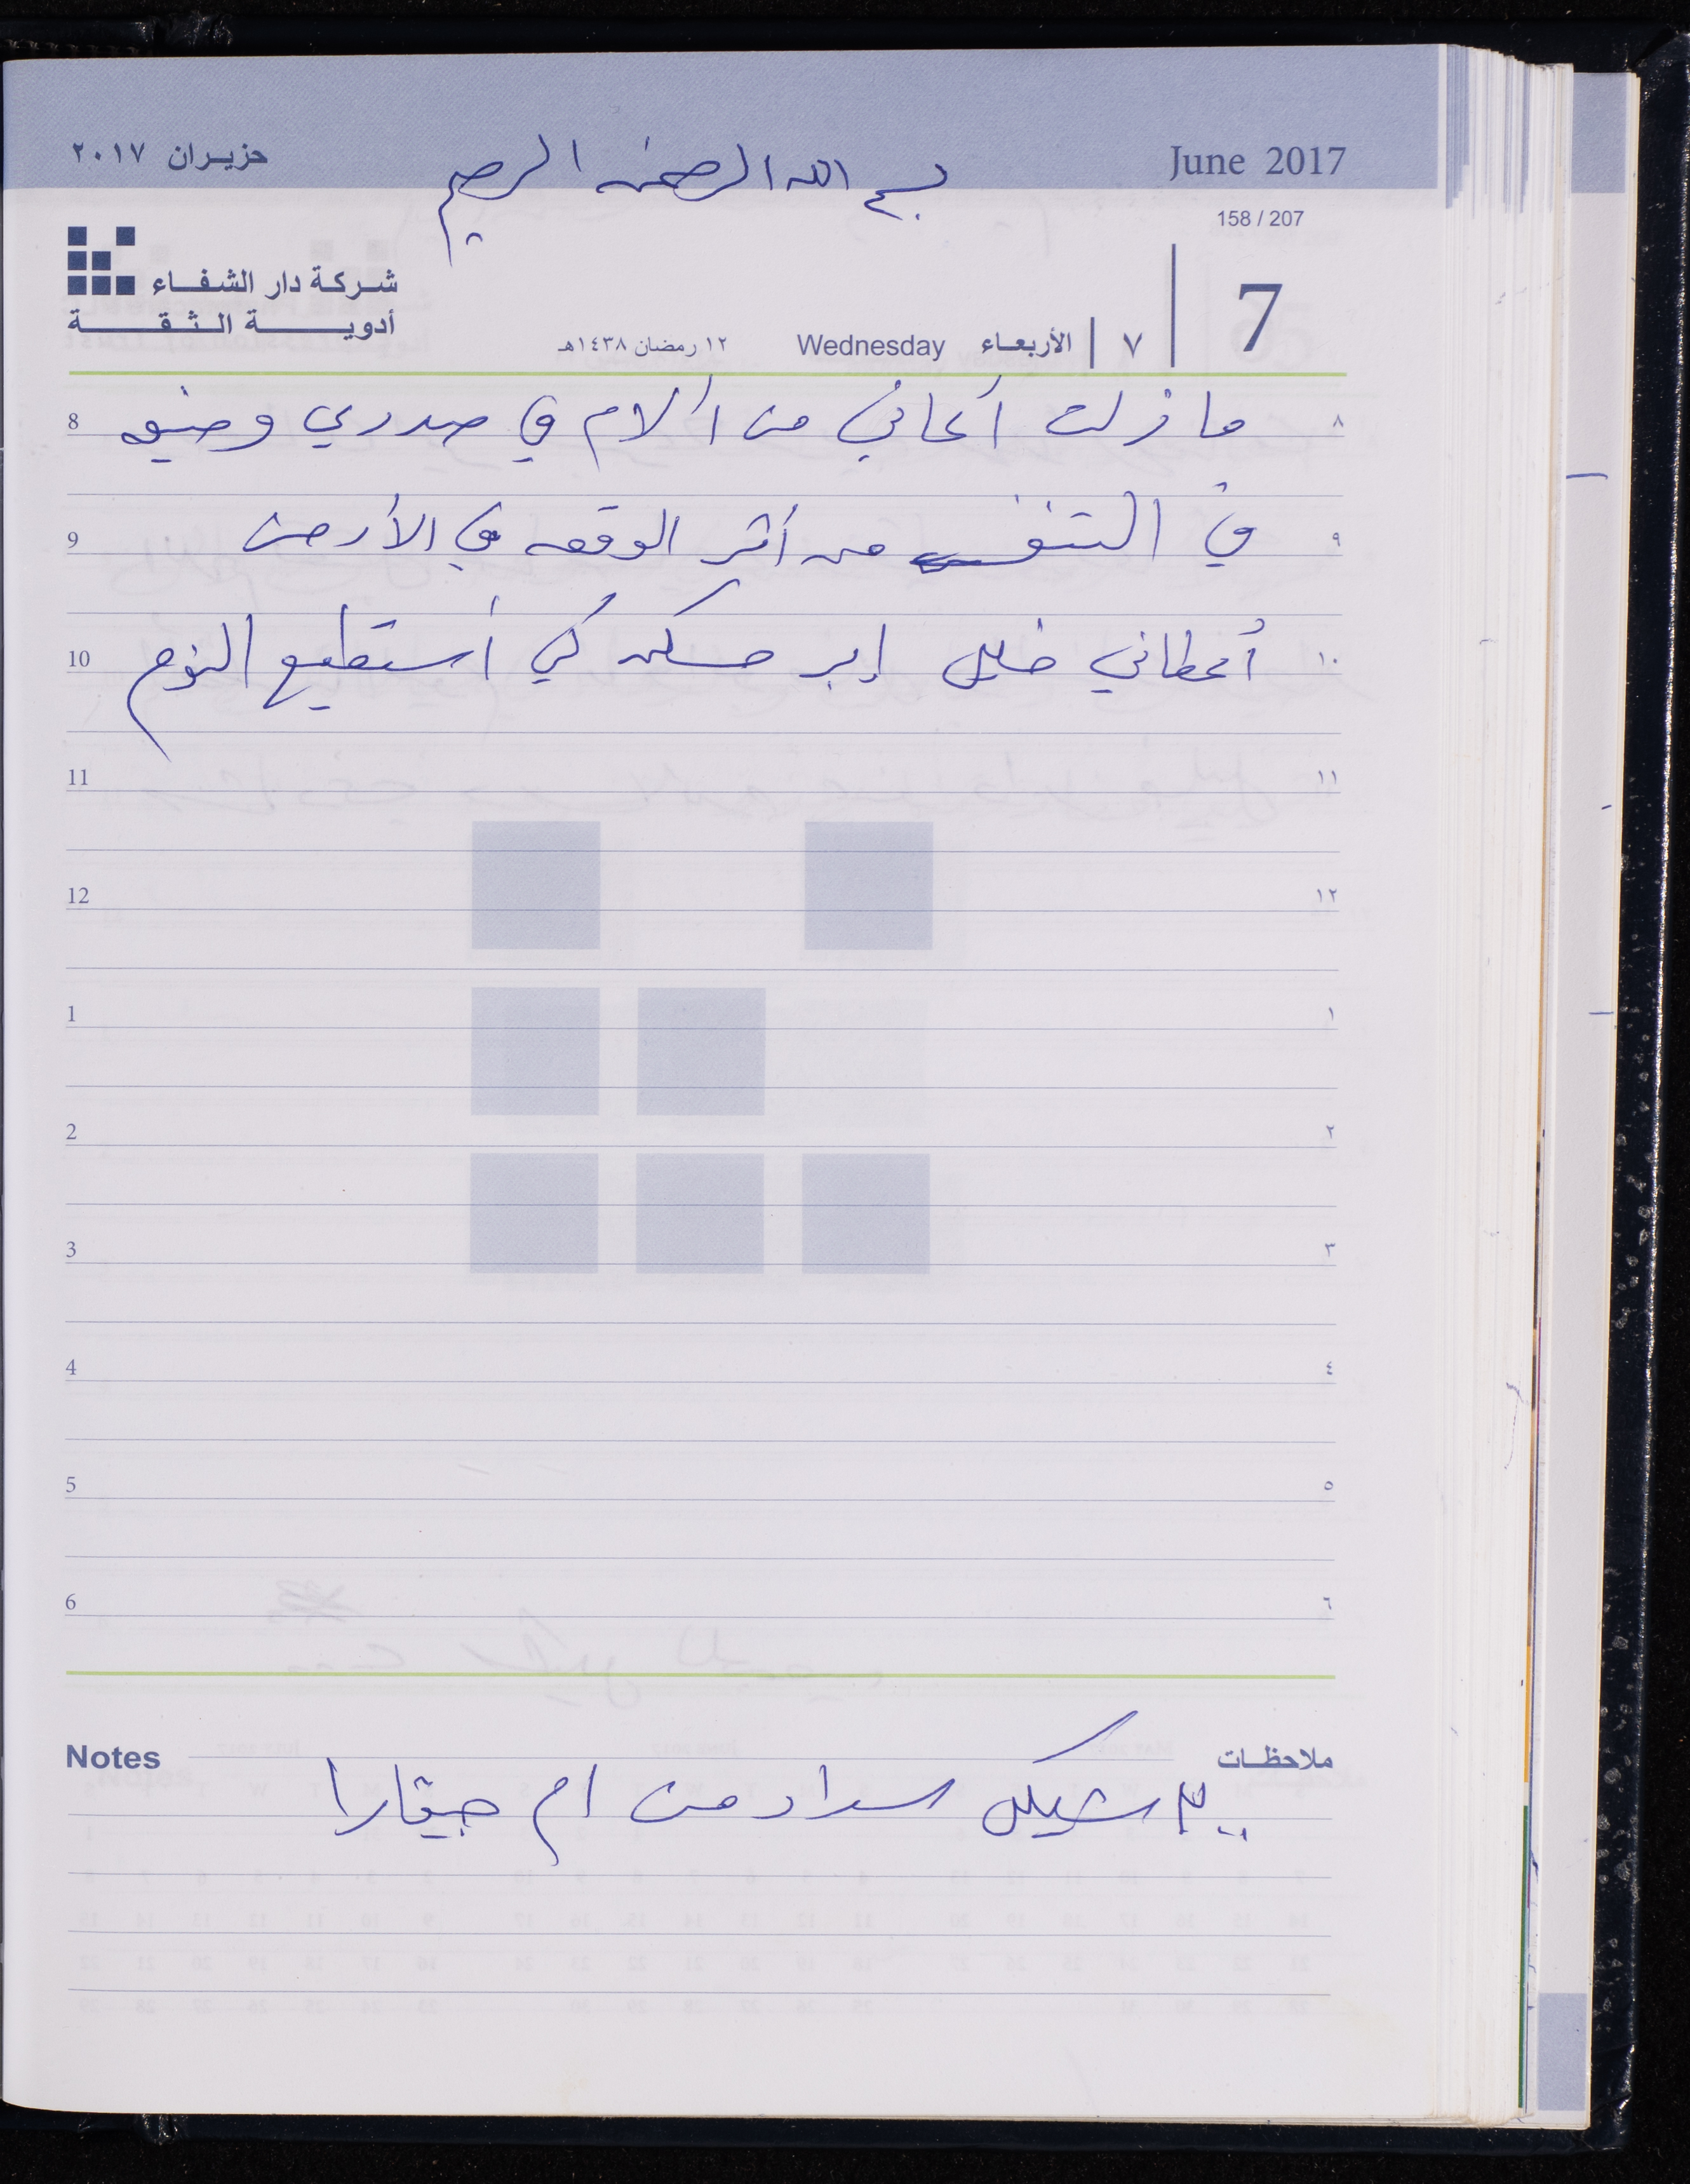 حزيران ٢٠١٧
June 2017
بسم الله الرحمن الرحيم
158 / 207
شركة دار الشفاء
أدوية الثقة
7
٧ الأربعاء Wednesday ١٢ رمضان ١٤٣٨هـ
8 ما زلت أعاني من آلام في صدري وضيق ٨
9 في التنفس من أثر الوقعه في الأرض ٩
10 أعطاني خليل إبر مسكن كي أستطيع النوم ١٠
11 ١١
12 ١٢
1 ١
2 ٢
3 ٣
4 ٤
5 ٥
6 ٦
Notes ملاحظات
شيكل سداد من ام جيفارا